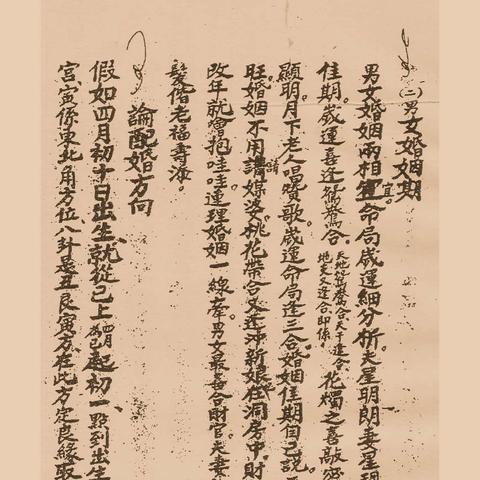 (二)男女婚姻期
男女婚姻兩相宜。命局歲運細分析。夫星明朗妻星
佳期。歲運喜逢鴛鴦合。天地鴛鴦合天干逢合。地支又逢合即係。花燭之喜敲
顯明。月下老人唱讚歌。歲運命局逢三合。婚姻佳期自己說。
旺。婚姻不用請媒婆。桃花帶合又逢沖。新娘在洞房中。財
改年就會抱哇哇。連理婚姻一線牽。男女最喜合財官。夫妻
髮偕老福壽添。
論配婚方向
假如四月初十日出生、就從己上四月為巳起初一、點到出生
宮、寅係東北角方位、八卦是丑艮寅方、在此方定良緣取